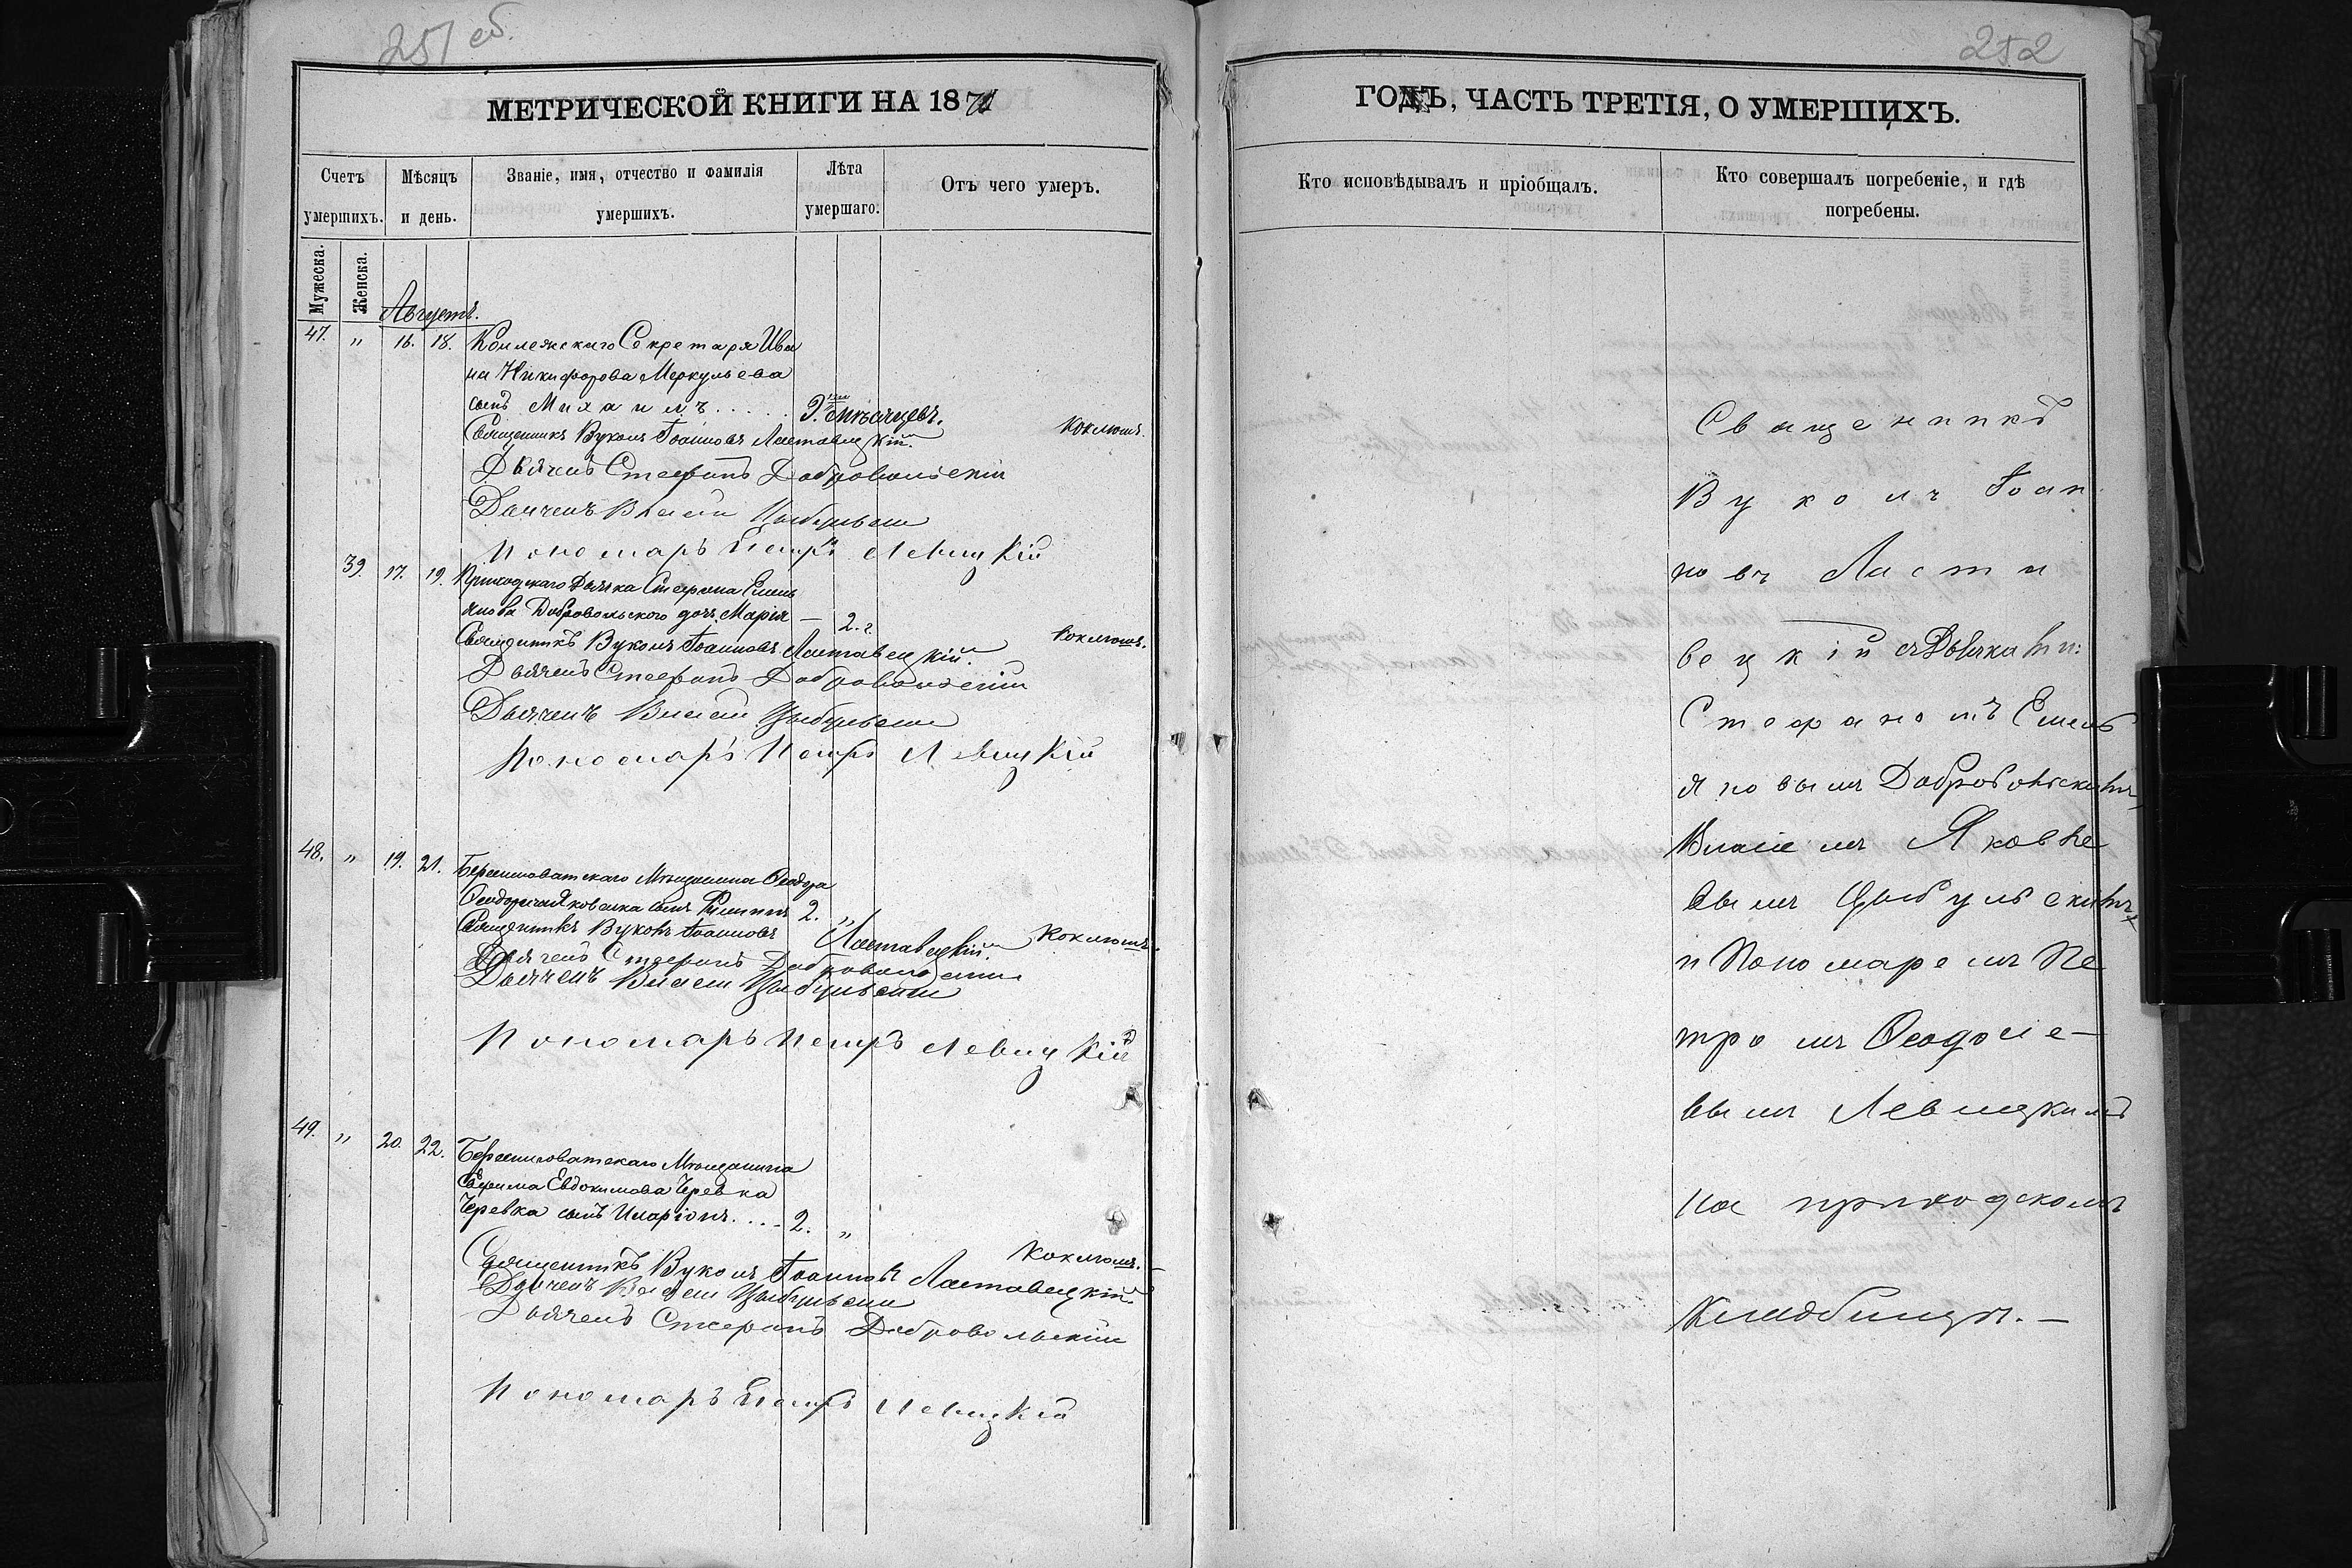 251 об.
МЕТРИЧЕСКОЙ КНИГИ НА 1871
Счетъ умершихъ.
Мѣсяцъ и день.
Званіе, имя, отчество и фамилія умершихъ.
Лѣта умершаго.
Отъ чего умеръ.
Мужеска.
Женска.
Августъ.
47. " 16. 18. Коллежскаго Секретаря Ива
на Никифорова Меркульева
сынъ Михаилъ..... 9. мѣсяцевъ.
Коклюшъ.
Священникъ Вуколъ Іоанновъ Ластавецкій.
Дьячекъ Стефанъ Добровольскій
Дьячекъ Власій Цыбульскій
Пономарь Петръ Левицкій
39. 17. 19. Приходскаго Дьячка Стефана Емель
янова Добровольскаго дочь Марія — 2. г.
Коклюшъ.
Священникъ Вуколъ Іоанновъ Ластавецкій.
Дьячекъ Стефанъ Добровольскій
Дьячекъ Власій Цыбульскій
Пономарь Петръ Левицкій
48. " 19. 21. Мѣщанина Ѳеодора
сынъ Филиппъ 2. "
Коклюшъ.
Священникъ Вуколъ Іоанновъ Ластавецкій.
Дьячекъ Стефанъ Добровольскій
Дьячекъ Власій Цыбульскій
Пономарь Петръ Левицкій
49. " 20. 22. Мѣщанина
Евфима Евдокимова Черевка
Черевка сынъ Иларіонъ.... 2. "
Коклюшъ. —
Священникъ Вуколъ Іоанновъ Ластавецкій.
Дьячекъ Власій Цыбульскій
Дьячекъ Стефанъ Добровольскій
Пономарь Петръ Левицкій
252
ГОДЪ, ЧАСТЬ ТРЕТІЯ, О УМЕРШИХЪ.
Кто исповѣдывалъ и пріобщалъ.
Кто совершалъ погребеніе, и гдѣ
погребены.
Священникъ
Вуколъ Іоан
новъ Ласта
вецкій съ Дьячками:
Стефаномъ Емель
яновымъ Добровольскимъ,
Власіемъ Яковле
вымъ Цыбульскимъ
и Пономаремъ Пе
тромъ Ѳеодосіе—
вымъ Левицкимъ
на приходскомъ
Кладбищѣ. —